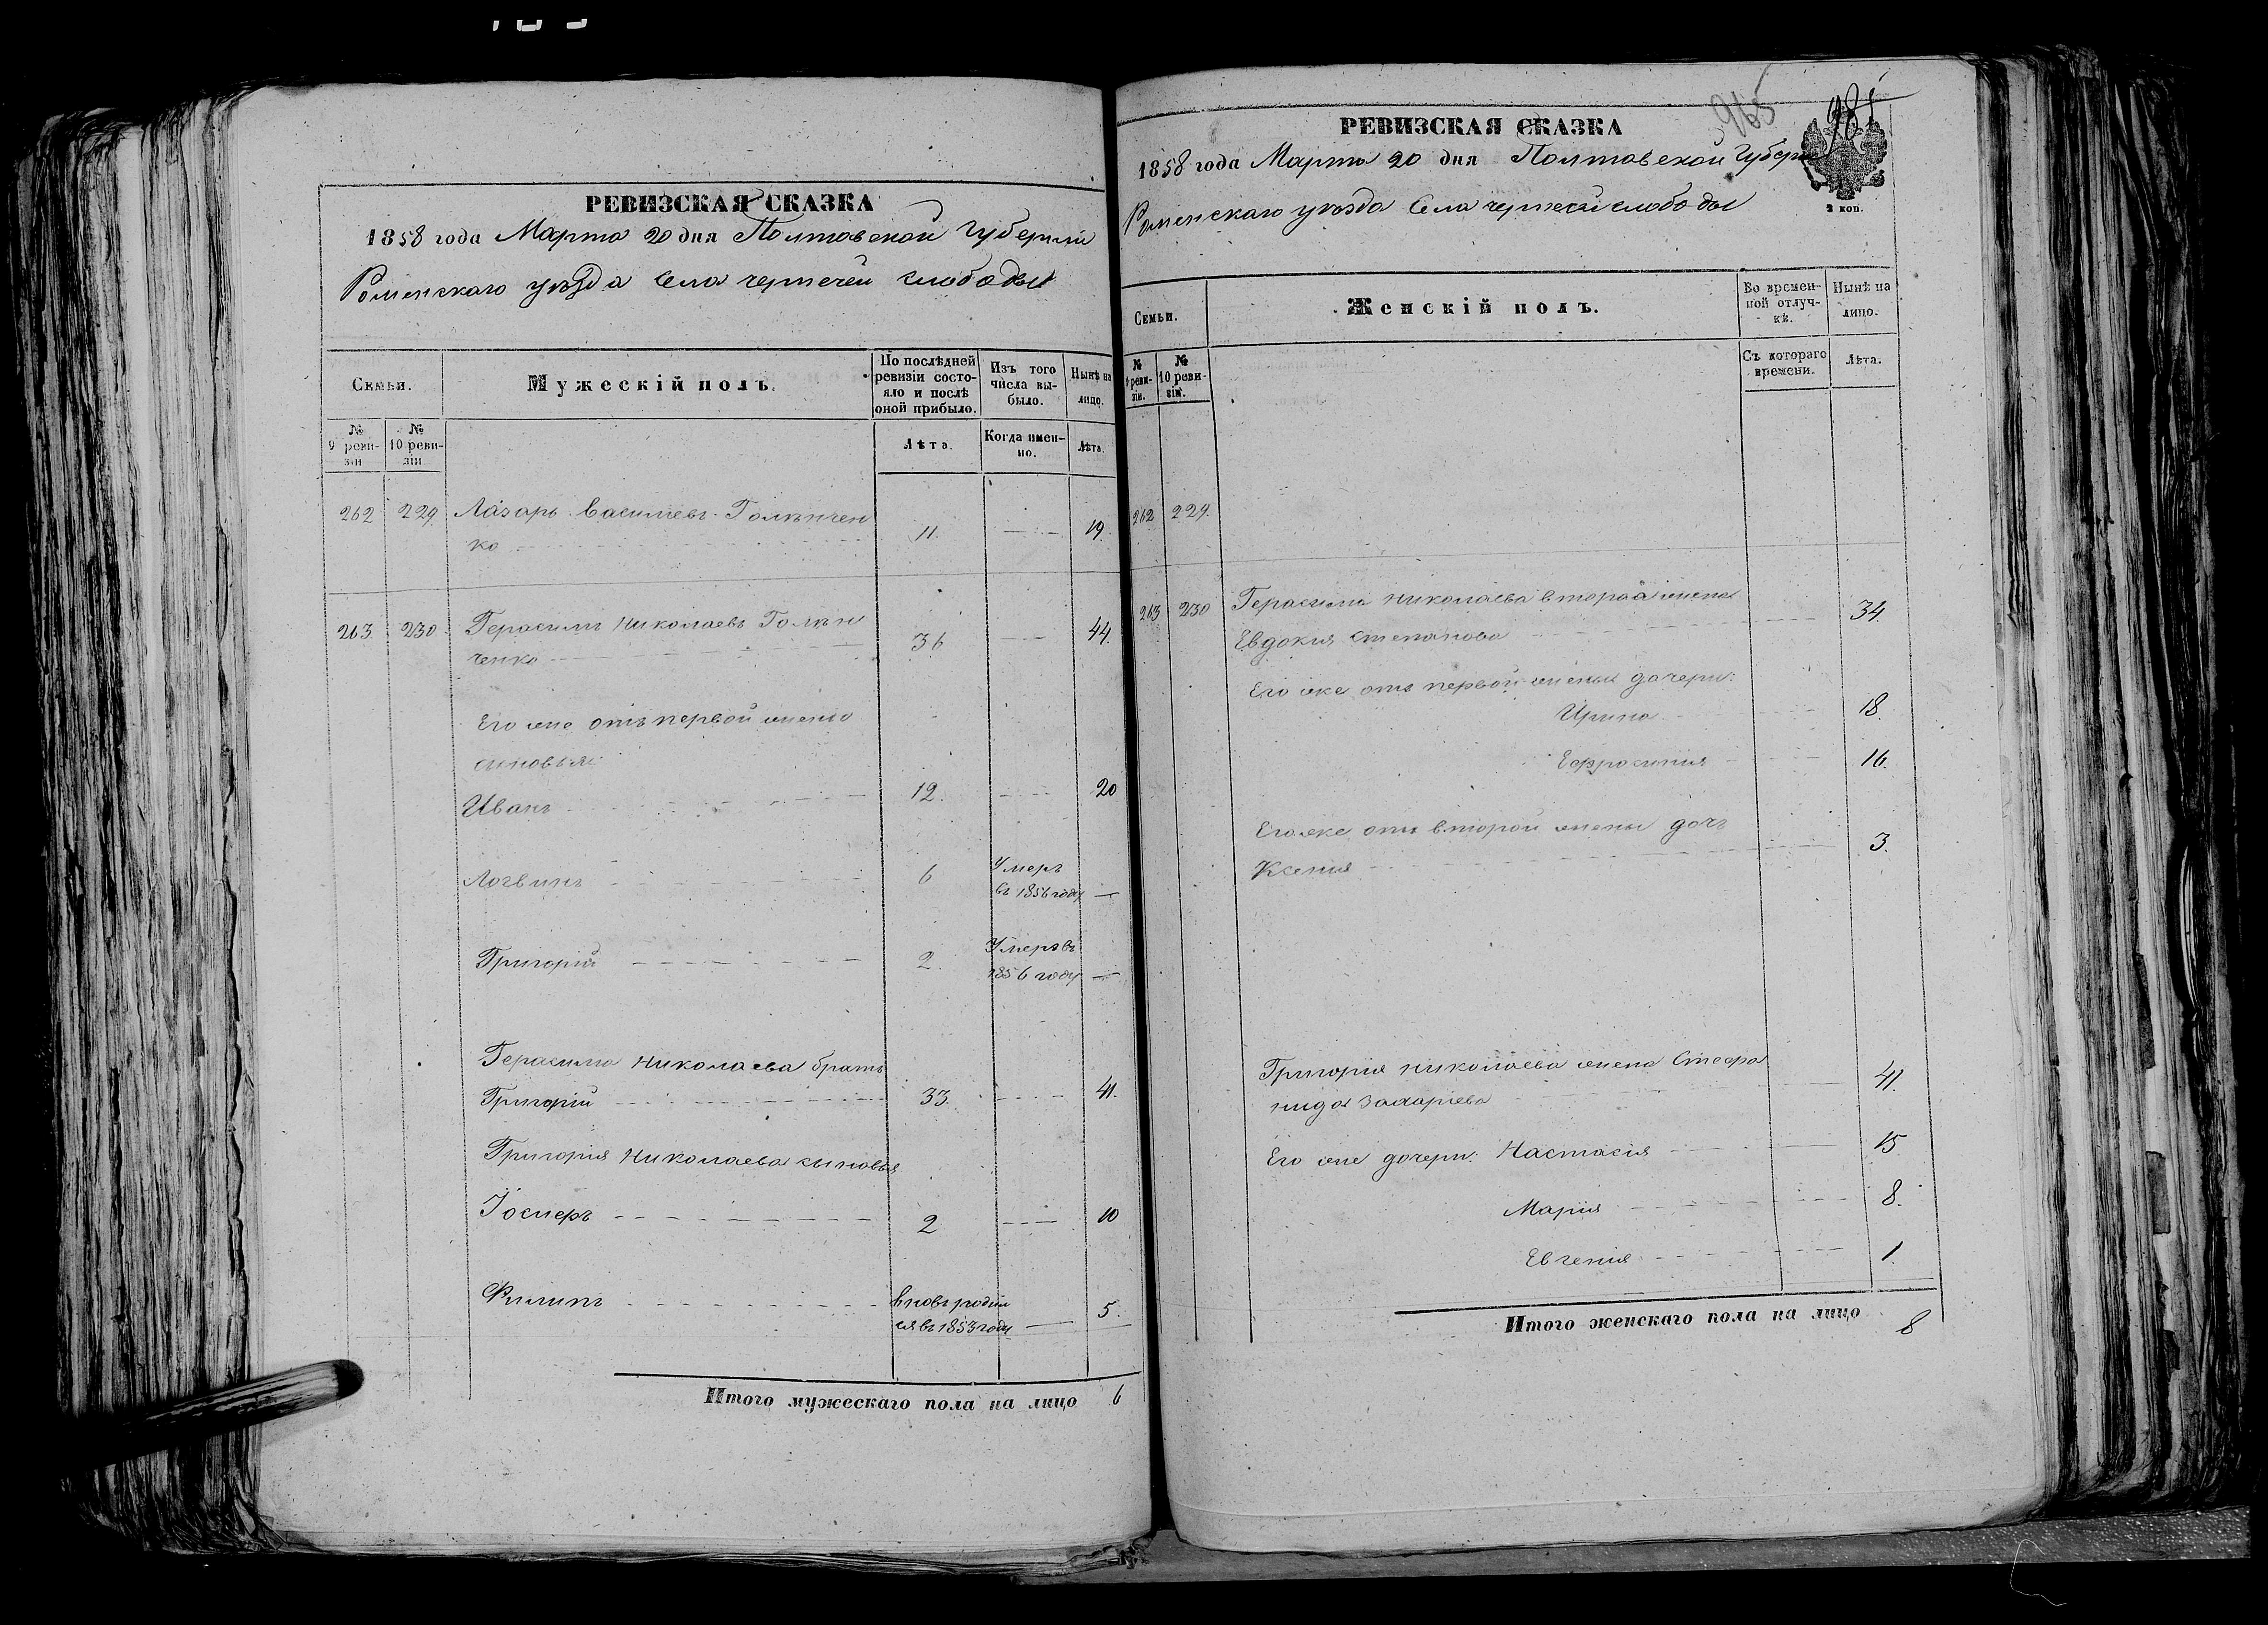 РЕВИЗСКАЯ СКАЗКА
1858 года Марта 20 дня Полтавской Губернии
Роменскаго уѣзда Села чернечей слободы
Семьи.
Мужескій полъ.
По послѣдней ревизіи состояло и послѣ оной прибыло.
Изъ того числа выбыло.
Нынѣ на лицо.
№ 9 ревизіи
№ 10 ревизіи.
Лѣта.
Когда именно.
Лѣта.
262 229 Лазарь Васильевъ Голѣнчен
ко 11. 19.
263 230 Герасимъ Николаевъ Голѣн
ченко 36 44.
Его же отъ первой жены
сыновья:
Иванъ 12. 20
Логвинъ 6 Умеръ
въ 1856 году
Григорій 2. Умеръ въ
1856 году
Герасима Николаева братъ
Григорій 33. 41.
Григорія Николаева сыновья
Іосиеръ 2 10
Филипъ вновь родил
ся въ 1853 году 5.
Итого мужескаго пола на лицо 6
965
981
РЕВИЗСКАЯ СКАЗКА
1858 года Марта 20 дня Полтавской Губерн
Роменскаго уѣзда Села чернечей слободы
2 коп.
Семьи.
Женскій полъ.
Во временной отлучкѣ.
Нынѣ на лицо.
№ 9 ревизіи.
№ 10 ревизіи.
Съ котораго времени.
Лѣта.
262 229.
263 230 Герасима Николаева вторая жена
Евдокия Степанова 34.
Его же отъ первой жены дочери:
Ирина 18.
Ефросиния 16.
Его же отъ второй жены дочь
Ксения 3.
Григория Николаева жена Стефа
нида Захариева 41.
Его же дочери: Настасія 15
Марія 8.
Евгенія 1.
Итого женскаго пола на лицо 8